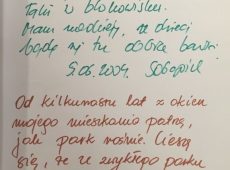 Taki w blokowisku.
Mam nadzieję, że dzieci
będą się tu dobrze bawić
5.06.2004.
Od kilkunastu lat z okien
mojego mieszkania patrzę,
jak park rośnie. Cieszę
się, że ze zwykłego parku